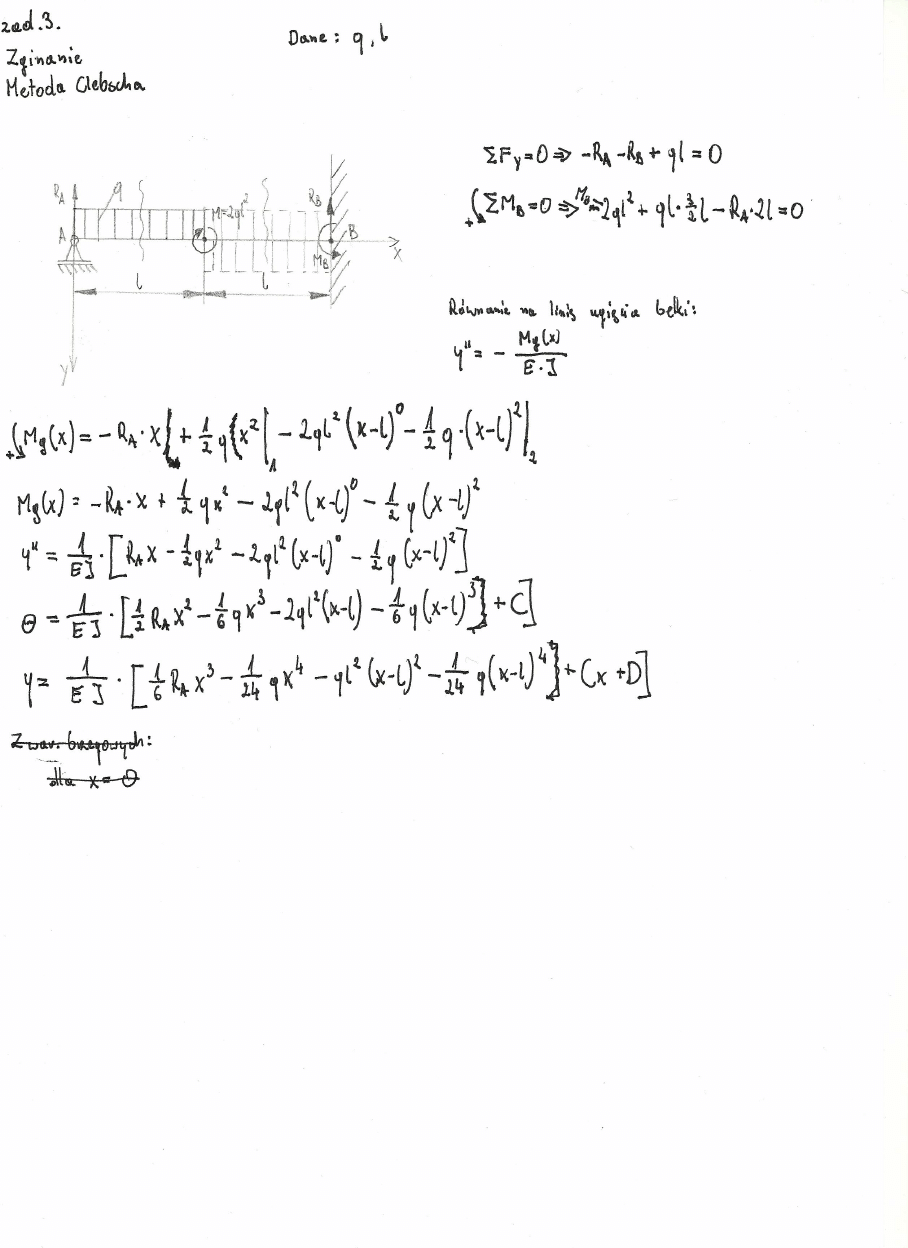 zad.3.
Dane: q, l
Zginanie
Metoda Clebscha
ΣFy=0 ⇒ -RA -RB + ql = 0
ΣMB=0 ⇒ MB-2ql² + ql·3/2l - RA·2l=0
+
RA q RB
M=2ql²
A B
x
MB
l l
y
Równanie na linię ugięcia belki:
y'' = - Mg(x)/E·J
Mg(x) = -RA·x | + 1/2 q x² |1 - 2ql² (x-l)⁰ - 1/2 q·(x-l)² |2
+
Mg(x) = -RA·x + 1/2 qx² - 2ql² (x-l)⁰ - 1/2 q (x-l)²
y'' = 1/EJ · [RA x - 1/2 qx² - 2ql² (x-l)⁰ - 1/2 q (x-l)²]
Θ = 1/EJ · [1/2 RA x² - 1/6 qx³ - 2ql² (x-l) - 1/6 q (x-l)³ + C]
y = 1/EJ · [1/6 RA x³ - 1/24 qx⁴ - ql² (x-l)² - 1/24 q(x-l)⁴ + Cx + D]
Z war. brzegowych:
dla x = 0